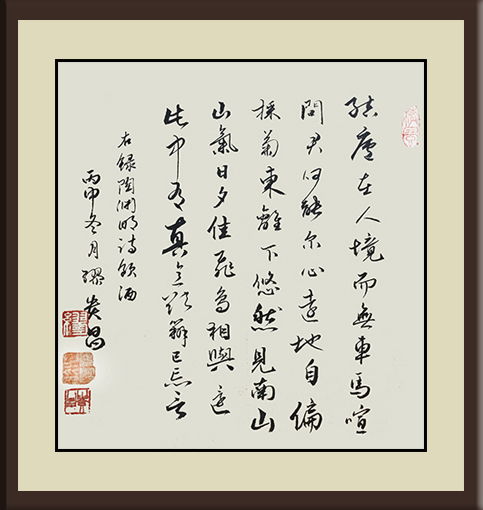 結廬在人境而無車馬喧
問君何能尔心遠地自偏
採菊東離下悠然見南山
山氣日夕佳飛鳥相與還
此中有真意欲辯已忘言
右錄陶淵明詩飲酒
丙申冬月繆昌